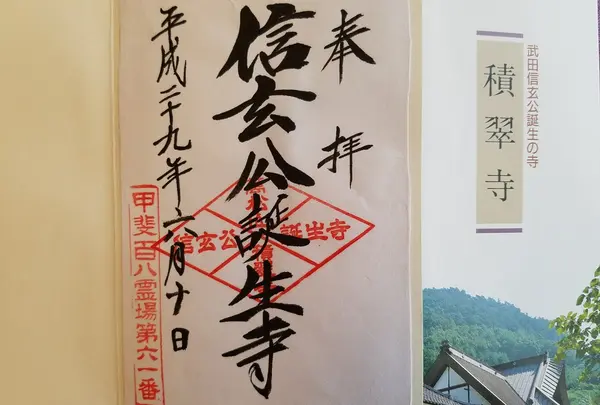 武田信玄公誕生の寺
積翠寺
奉拝
信玄公誕生寺
平成二十九年六月十日
信玄公誕生寺
甲斐百八霊場第六一番